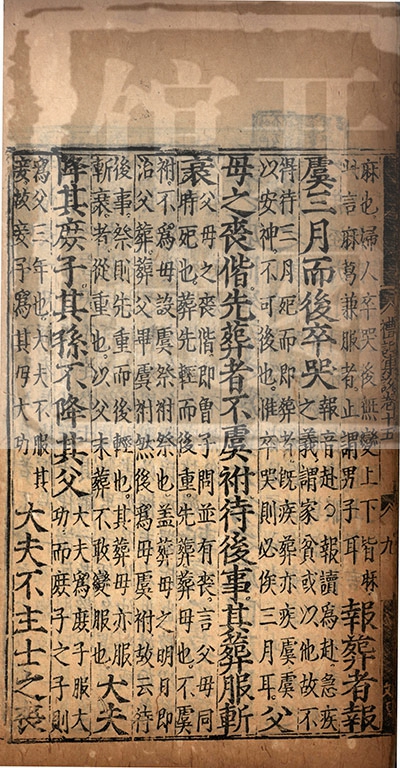 禮記集說卷十五 九
麻也婦人卒哭後無變上下皆麻
此言麻葛兼服者止謂男子耳
報葬者報
虞三月而後卒哭
報音赴○報讀為赴急疾
之義謂家貧或以他故不
得待三月死而即葬者既疾葬亦疾虞虞
以安神不可後也惟卒哭則必俟三月耳
父
母之喪偕先葬者不虞祔待後事其葬服斬
衰
父母之喪偕即曾子問並有喪言父母同
時死也葬先輕而後重先葬母也不虞
祔不爲母設虞祔祭也蓋葬母之明日即
治父葬葬父畢虞祔然後爲母虞祔故云待
後事祭則先重而後輕也其葬母亦服
斬衰者從重也以父未葬不敢變服也
大夫
降其庶子其孫不降其父
大夫爲庶子服大
功而庶子之子則
爲父三年也大夫不服其
妾故妾子爲其母大功
大夫不主士之喪